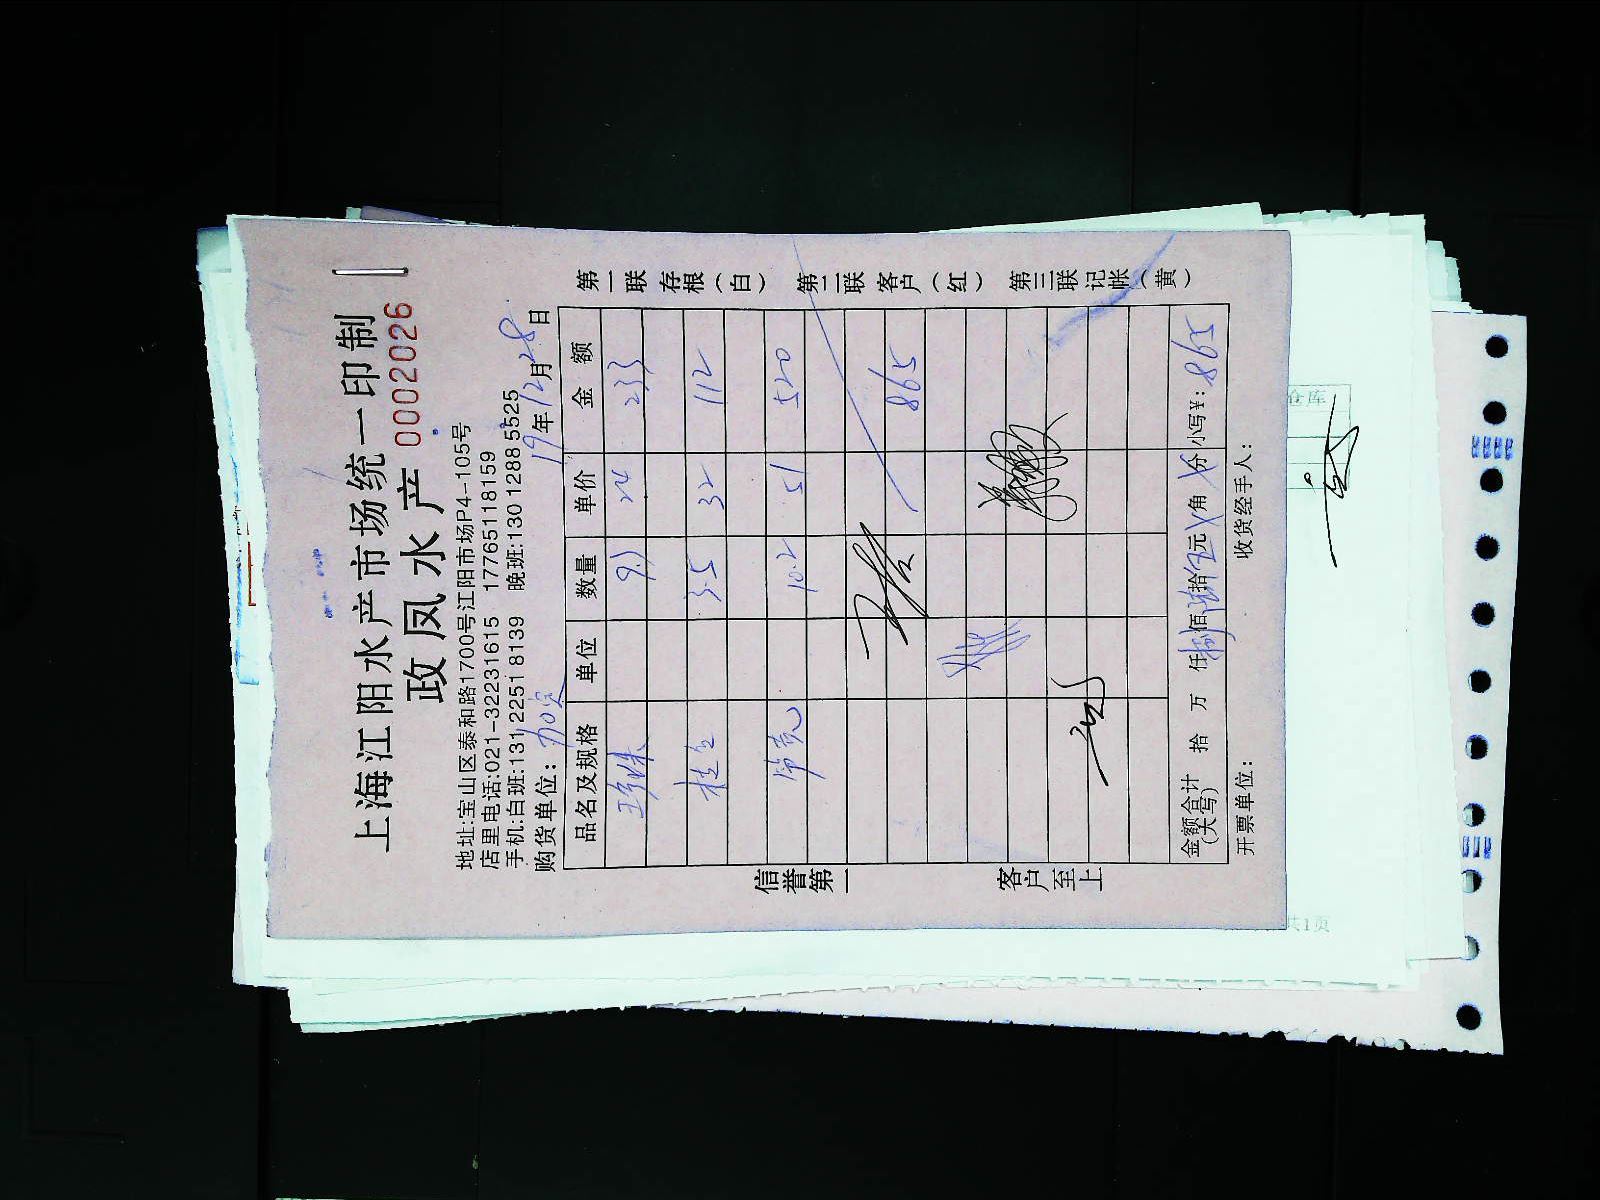 上海江阳水产市场统一印制
政凤水产 0002026
地址:宝山区泰和路1700号江阳市场P4-105号
店里电话:021-32231615 17765118159
手机:白班:131 2251 8139 晚班:130 1288 5525
购货单位: 19年12月28日
品名及规格 单位 数量 单价 金额
24 233
桂鱼 3.5 32 112
10.2 51 520
865
金额合计(大写) 拾 万 仟 捌佰陆拾伍元 角 分 小写¥: 865
开票单位: 收货经手人:
第一联 存根(白) 第二联 客户(红) 第三联 记帐(黄)
信誉第一
客户至上
仓库
共1页